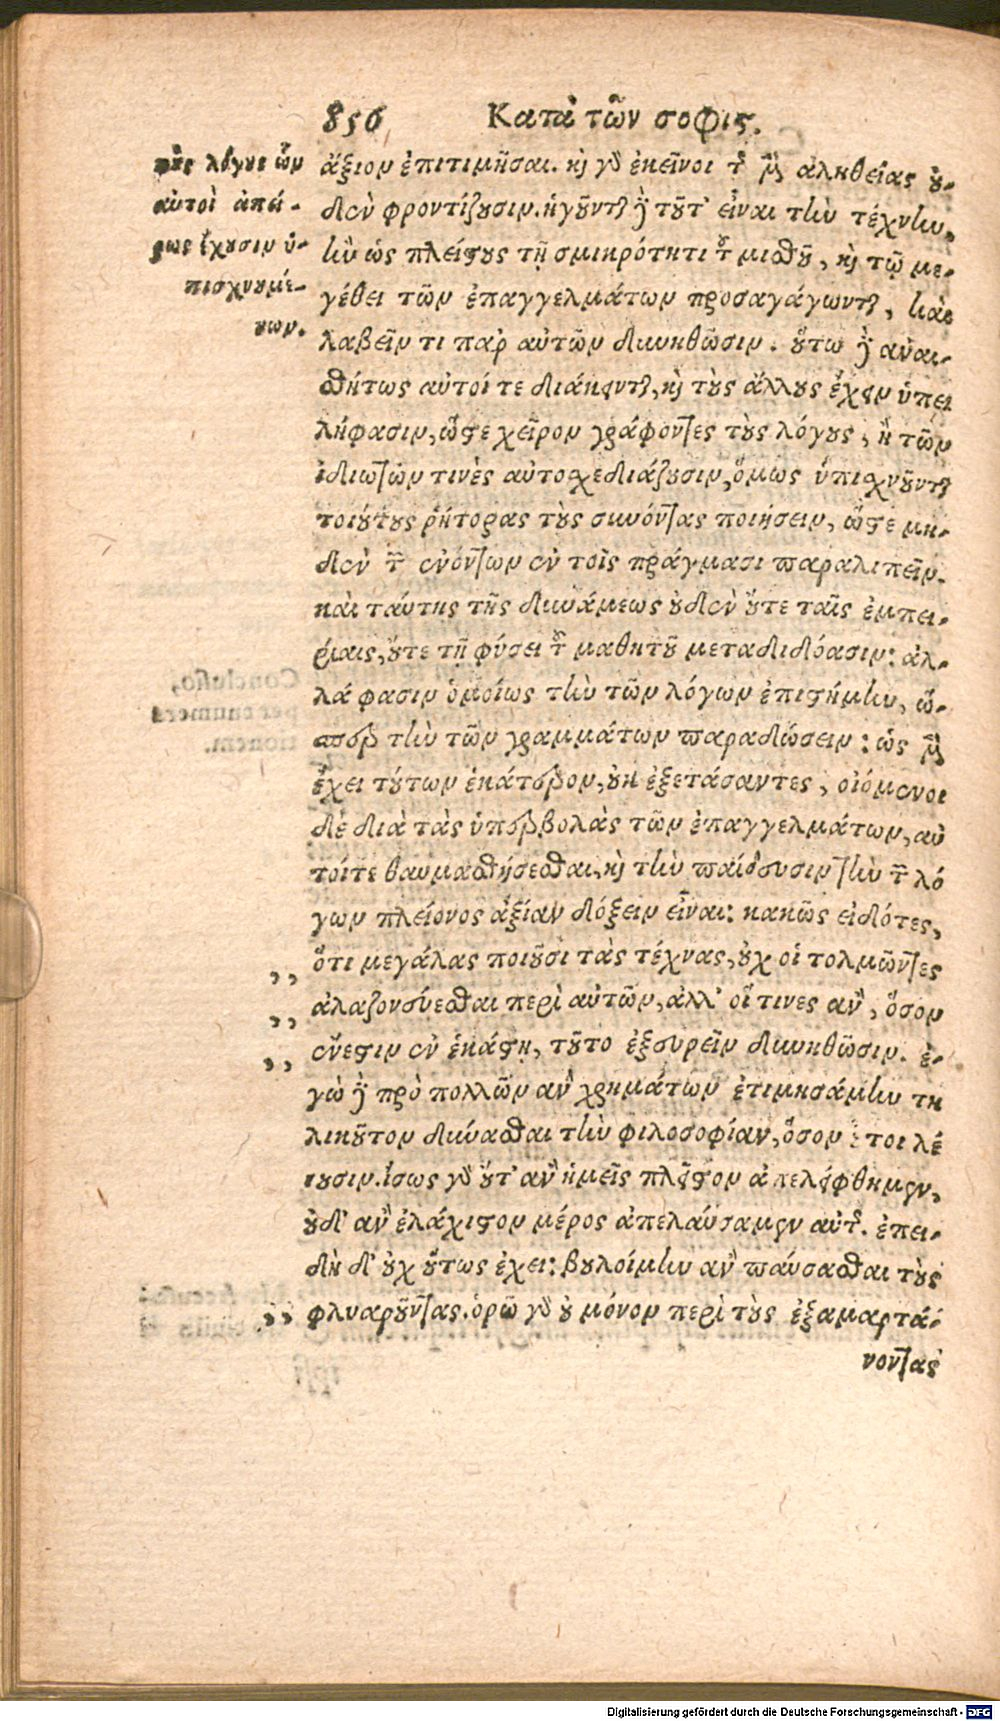 856 Κατὰ τῶν σοφις.
τοὺς λόγους ὧν
αὐτοὶ ἀπεί-
ρως ἔχουσιν ὑ-
πισχνουμέ-
νων.
ἄξιον ἐπιτιμῆσαι. καὶ γὰρ ἐκεῖνοι τῆς μὲν ἀληθείας οὐ-
δὲν φροντίζουσιν. ἡγοῦνται δὲ τοῦτ' εἶναι τὴν τέχνην,
ἢν ὡς πλείστους τῇ σμικρότητι τοῦ μισθοῦ, καὶ τῷ με-
γέθει τῶν ἐπαγγελμάτων προσαγάγωνται, καὶ
λαβεῖν τι παρ' αὐτῶν δυνηθῶσιν. οὕτω δὲ ἀναι-
σθήτως αὐτοί τε διάκεινται, καὶ τοὺς ἄλλους ἔχειν ὑπει
λήφασιν, ὥστε χεῖρον γράφοντες τοὺς λόγους, ἢ τῶν
ἰδιωτῶν τινὲς αὐτοσχεδιάζουσιν, ὅμως ὑπισχνοῦνται
τοιούτους ῥήτορας τοὺς συνόντας ποιήσειν, ὥστε μη-
δὲν τῶν ἐνόντων ἐν τοῖς πράγμασι παραλιπεῖν.
καὶ ταύτης τῆς δυνάμεως οὐδὲν οὔτε ταῖς ἐμπει-
ρίαις, οὔτε τῇ φύσει τοῦ μαθητοῦ μεταδιδόασιν: ἀλ-
λά φασιν ὁμοίως τὴν τῶν λόγων ἐπιστήμην, ὥ-
σπερ τὴν τῶν γραμμάτων παραδώσειν: ὡς μὲν
ἔχει τούτων ἑκάτερον, οὐκ ἐξετάσαντες, οἰόμενοι
δὲ διὰ τὰς ὑπερβολὰς τῶν ἐπαγγελμάτων, αὐ
τοίτε θαυμασθήσεσθαι, καὶ τὴν παίδευσιν τὴν τῶν λό
γων πλείονος ἀξίαν δόξειν εἶναι: κακῶς εἰδότες,
,, ὅτι μεγάλας ποιοῦσι τὰς τέχνας, οὐχ οἱ τολμῶντες
,, ἀλαζονεύεσθαι περὶ αὐτῶν, ἀλλ' οἵ τινες ἂν, ὅσον
,, ἔνεστιν ἐν ἑκάστῃ, τοῦτο ἐξευρεῖν δυνηθῶσιν. ἐ-
γὼ δὲ πρὸ πολλῶν ἂν χρημάτων ἐτιμησάμην τη
λικοῦτον δύνασθαι τὴν φιλοσοφίαν, ὅσον οὗτοι λέ
γουσιν. ἴσως γὰρ οὔτ' ἂν ἡμεῖς πλεῖστον ἀπελείφθημεν,
οὐδ' ἂν ἐλάχιστον μέρος ἀπελαύσαμεν αὐτῆς. ἐπει-
δὴ δ' οὐχ οὕτως ἔχει: βουλοίμην ἂν παύσασθαι τοὺς
,, φλυαροῦντας. ὁρῶ γὰρ οὐ μόνον περὶ τοὺς ἐξαμαρτά-
νοντας
Digitalisierung gefördert durch die Deutsche Forschungsgemeinschaft - DFG